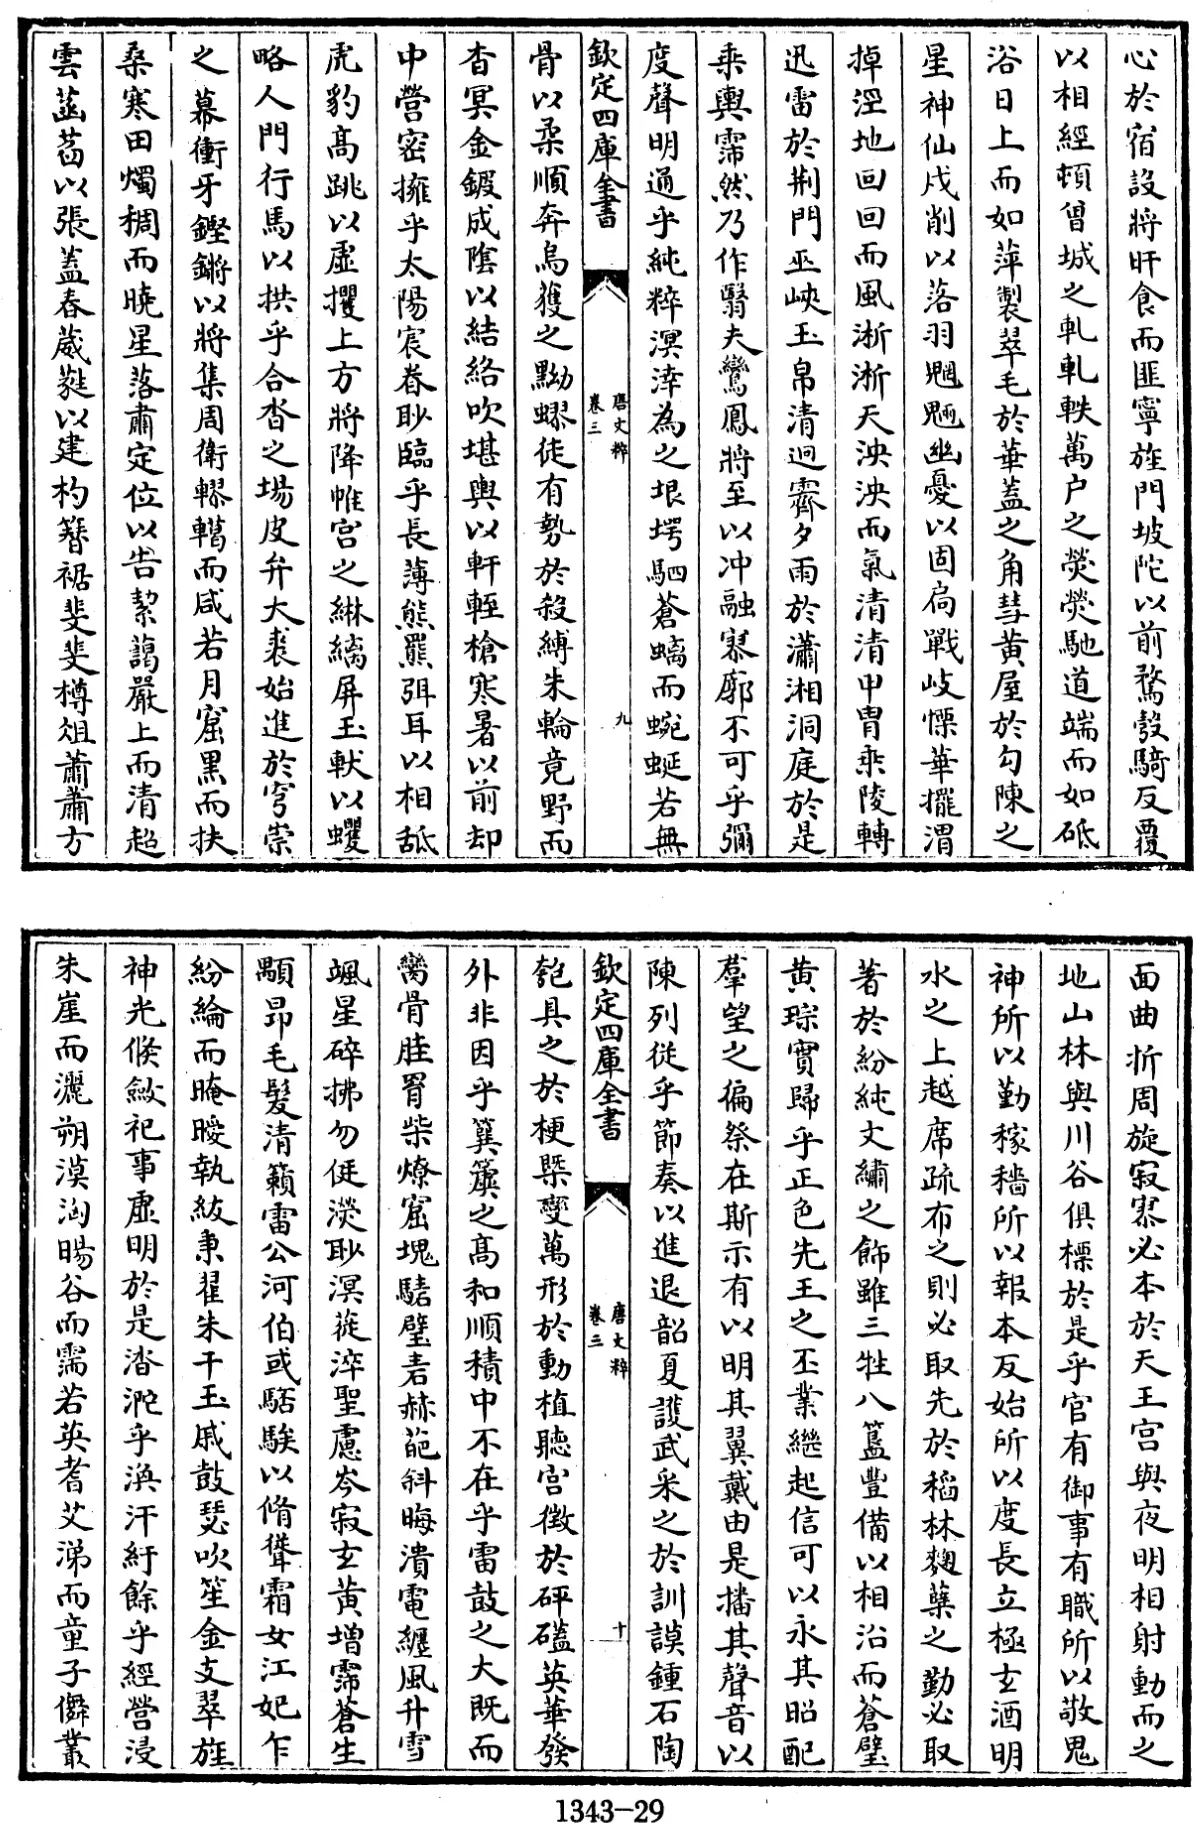 心於宿設將旰食而匪寧旌門坡陀以前騖彀騎反覆
以相經頓曾城之軋軋軼萬户之熒熒馳道端而如砥
浴日上而如萍製翠毛於華蓋之角彗黄屋於勾陳之
星神仙戍削以落羽魍魎幽憂以固扃戰岐慄華擺渭
掉涇地回回而風淅淅天泱泱而氣清清甲胄乘陵轉
迅雷於荆門巫峽玉帛清迥霽夕雨於瀟湘洞庭於是
乘輿霈然乃作翳夫鸞鳳將至以冲融寥廓不可乎彌
度聲明通乎純粹溟涬為之垠堮駟蒼螭而蜿蜒若無
欽定四庫全書
唐文粹
卷三
九
骨以柔順奔烏獲之黝蟉徒有勢於殺縛朱輪竟野而
杳冥金鍐成陰以結絡吹堪輿以軒輊槍寒暑以前却
中營密擁乎太陽宸眷眇臨乎長薄熊羆弭耳以相舐
虎豹髙跳以虛攫上方將降帷宫之綝縭屏玉軑以蠼
略人門行馬以拱乎合沓之場皮弁大裘始進於穹崇
之幕衝牙鏗鏘以將集周衛轇轕而咸若月窟黒而扶
桑寒田燭稠而曉星落肅定位以告㓗藹嚴上而清超
雲菡萏以張蓋春葳蕤以建杓簪裾斐斐樽俎蕭蕭方
面曲折周旋寂寥必本於天王宫與夜明相射動而之
地山林與川谷俱標於是乎官有御事有職所以敬鬼
神所以勤稼穡所以報本反始所以度長立極玄酒明
水之上越席疏布之則必取先於稻秫麴糵之勤必取
著於紛純文繡之飾雖三牲八簋豐備以相沿而蒼璧
黄琮實歸乎正色先王之丕業繼起信可以永其昭配
羣望之徧祭在斯示有以明其翼戴由是播其聲音以
陳列從乎節奏以進退韶夏濩武采之於訓謨鍾石陶
欽定四庫全書
唐文粹
卷三
十
匏具之於梗槩變萬形於動植聽宫徴於砰磕英華發
外非因乎簨簴之髙和順積中不在乎雷鼓之大既而
臠骨胜胃柴燎窟塊騞砉赫葩斜晦潰電纒風升雪
颯星碎拂勿侹濙眇溟蓯淬聖慮岑寂玄黄増霈蒼生
顒昂毛髮清籟雷公河伯或駓騃以脩聳霜女江妃乍
紛綸而晻曖執紱秉翟朱干玉戚鼓瑟吹笙金支翠旌
神光倐斂祀事虛明於是涾沱乎渙汗紆餘乎經營浸
朱崖而灑朔漠洶暘谷而濡若英耆艾涕而童子儛叢
1343-29